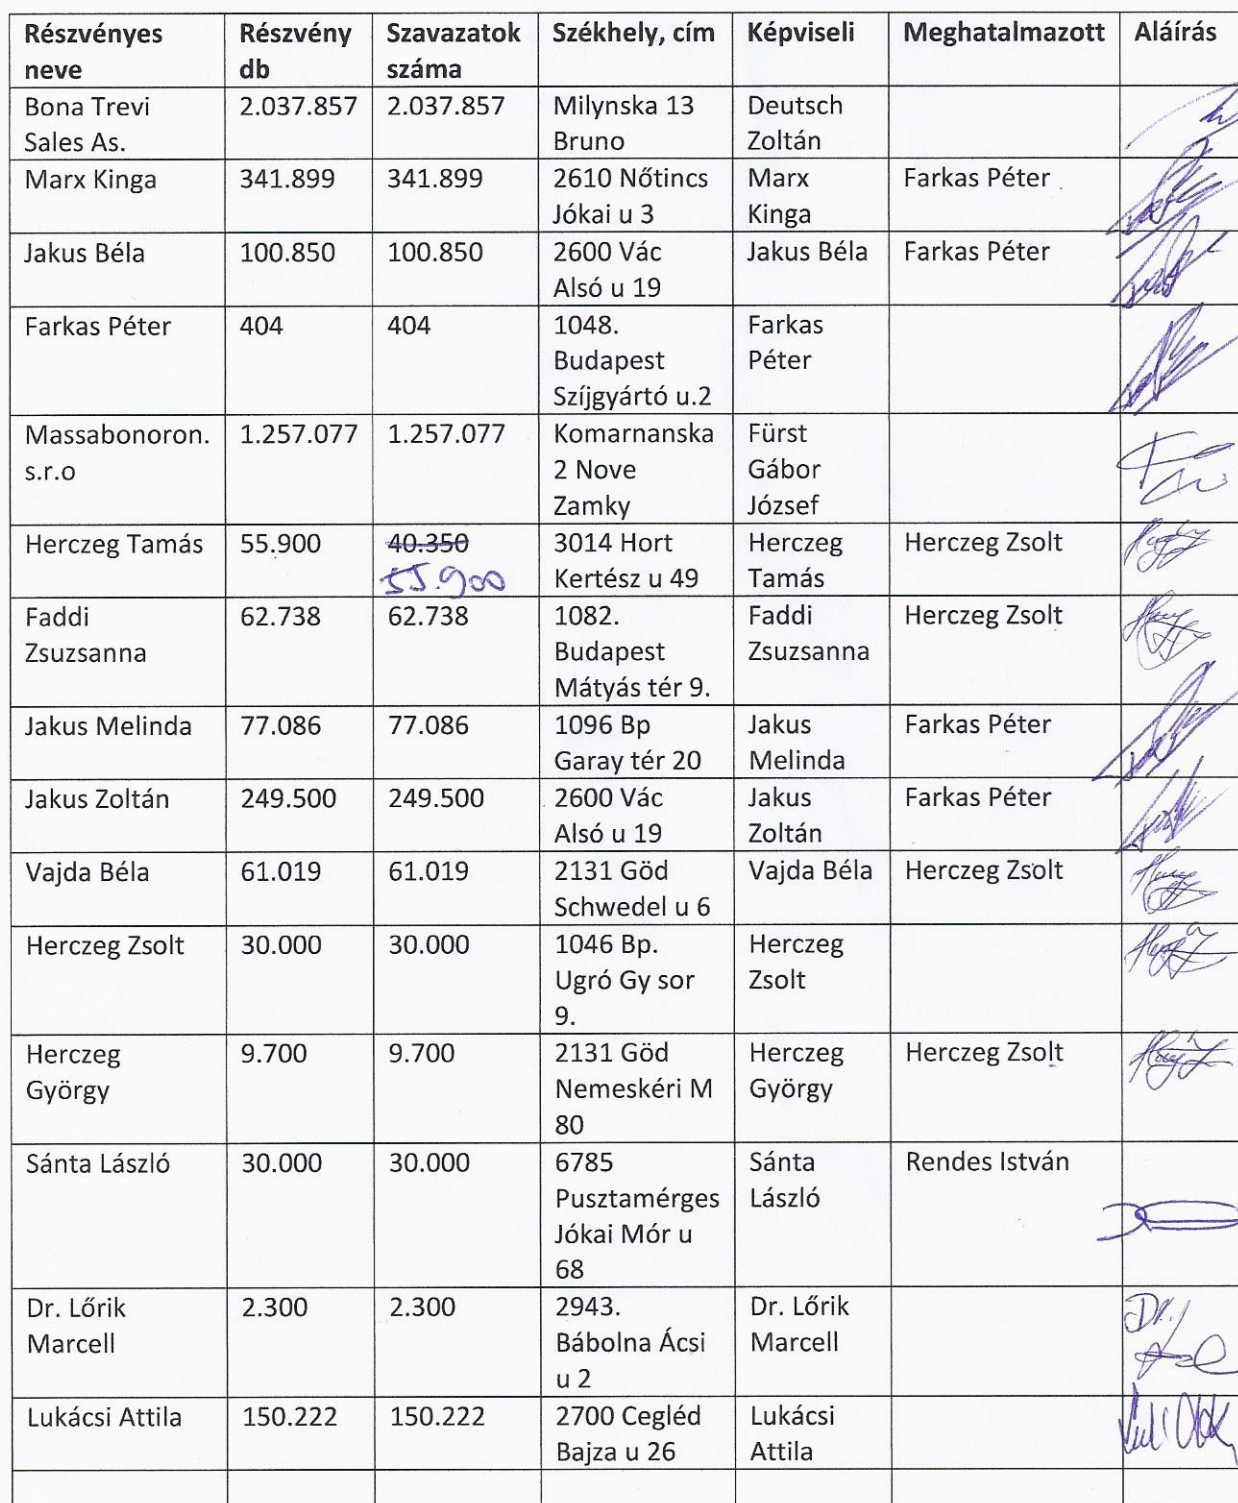 Részvényes neve | Részvény db | Szavazatok száma | Székhely, cím | Képviseli | Meghatalmazott | Aláírás
Bona Trevi Sales As. | 2.037.857 | 2.037.857 | Milynska 13 Bruno | Deutsch Zoltán
Marx Kinga | 341.899 | 341.899 | 2610 Nőtincs Jókai u 3 | Marx Kinga | Farkas Péter
Jakus Béla | 100.850 | 100.850 | 2600 Vác Alsó u 19 | Jakus Béla | Farkas Péter
Farkas Péter | 404 | 404 | 1048. Budapest Szíjgyártó u.2 | Farkas Péter
Massabonoron. s.r.o | 1.257.077 | 1.257.077 | Komarnanska 2 Nove Zamky | Fürst Gábor József
Herczeg Tamás | 55.900 | 40.350 55.900 | 3014 Hort Kertész u 49 | Herczeg Tamás | Herczeg Zsolt
Faddi Zsuzsanna | 62.738 | 62.738 | 1082. Budapest Mátyás tér 9. | Faddi Zsuzsanna | Herczeg Zsolt
Jakus Melinda | 77.086 | 77.086 | 1096 Bp Garay tér 20 | Jakus Melinda | Farkas Péter
Jakus Zoltán | 249.500 | 249.500 | 2600 Vác Alsó u 19 | Jakus Zoltán | Farkas Péter
Vajda Béla | 61.019 | 61.019 | 2131 Göd Schwedel u 6 | Vajda Béla | Herczeg Zsolt
Herczeg Zsolt | 30.000 | 30.000 | 1046 Bp. Ugró Gy sor 9. | Herczeg Zsolt
Herczeg György | 9.700 | 9.700 | 2131 Göd Nemeskéri M 80 | Herczeg György | Herczeg Zsolt
Sánta László | 30.000 | 30.000 | 6785 Pusztamérges Jókai Mór u 68 | Sánta László | Rendes István
Dr. Lőrik Marcell | 2.300 | 2.300 | 2943. Bábolna Ácsi u 2 | Dr. Lőrik Marcell | Dr.
Lukácsi Attila | 150.222 | 150.222 | 2700 Cegléd Bajza u 26 | Lukácsi Attila